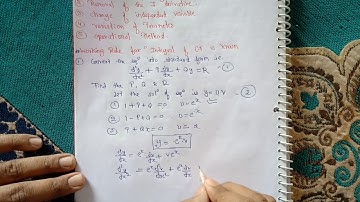 ② Removal of the I derivative
③ change of independent variable
④ variation of Parameter
⑤ operational Method
Working Rule for Integral of CF is known
① Convert the eqⁿ into standard form i.e.
d²y/dx² + P dy/dx + Qy = R ①
Find the P, Q & R
Let the solⁿ of eqⁿ is y = uv ②
① 1+P+Q = 0 u = eˣ
② 1-P+Q = 0 u = e⁻ˣ
③ P+Qx = 0 u = x
y = eˣv
dy/dx = eˣ dv/dx + veˣ
d²y/dx² = eˣ d²v/dx² + eˣ dv/dx +